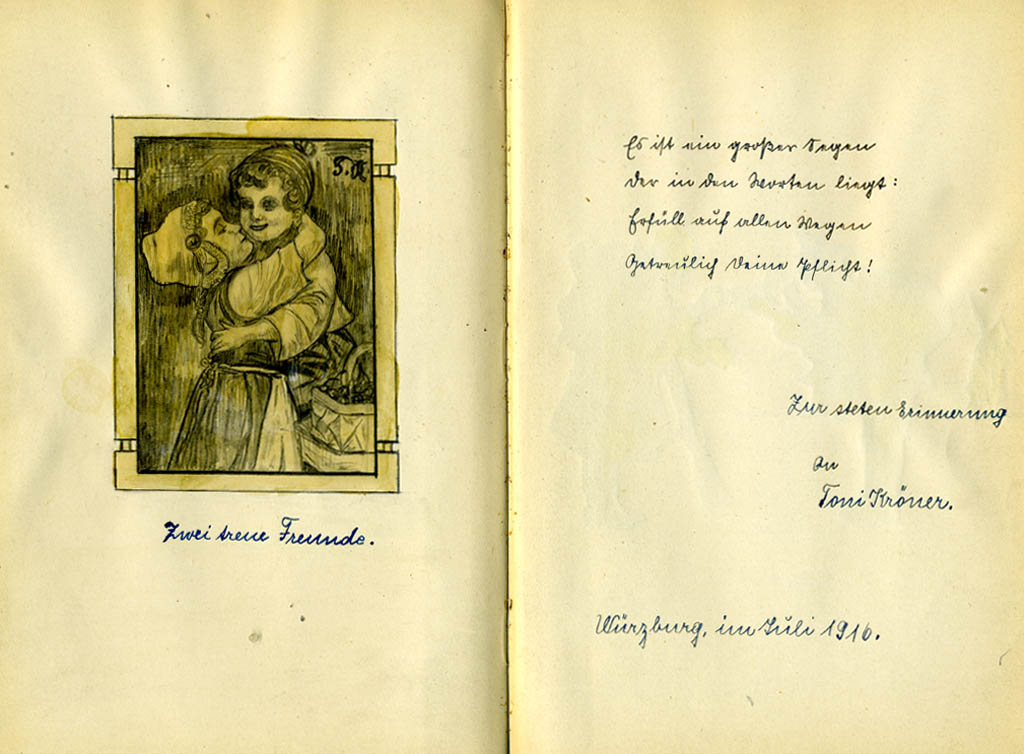 T.K
Zwei treue Freunde.
Es ist ein großer Segen
Der in den Worten liegt:
Erfüll auf allen Wegen
Getreulich Deine Pflicht!
Zur steten Erinnerung
An
Toni Kröner.
Würzburg, im Juli 1916.